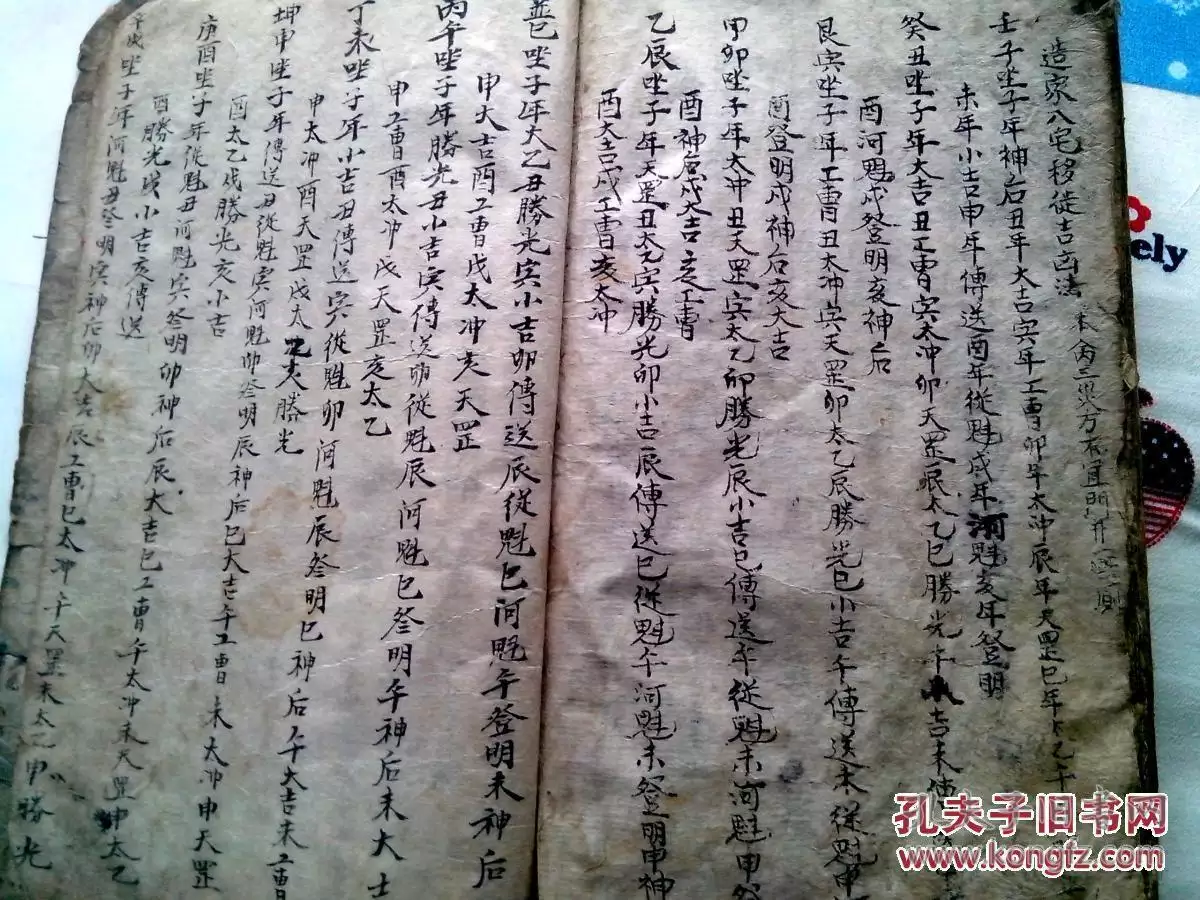 造家八宅移徙吉凶法
壬子坐子年神后丑年大吉寅年工曹卯年太冲辰年天罡巳年太乙午
未年小吉申年傳送酉年從魁戌年河魁亥年登明
癸丑坐子年大吉丑工曹寅太冲卯天罡辰太乙巳勝光午小吉未傳
酉河魁戌登明亥神后
艮寅坐子年工曹丑太冲寅天罡卯太乙辰勝光巳小吉午傳送未從魁申
酉登明戌神后亥大吉
甲卯坐子年太冲丑天罡寅太乙卯勝光辰小吉巳傳送午從魁未河魁申登
酉神后戌大吉亥工曹
乙辰坐子年天罡丑太乙寅勝光卯小吉辰傳送巳從魁午河魁未登明申神
酉大吉戌工曹亥太冲
巽巳坐子年太乙丑勝光寅小吉卯傳送辰從魁巳河魁午登明未神后
申大吉酉工曹戌太冲亥天罡
丙午坐子年勝光丑小吉寅傳送卯從魁辰河魁巳登明午神后未大吉
申工曹酉太冲戌天罡亥太乙
丁未坐子年小吉丑傳送寅從魁卯河魁辰登明巳神后午大吉未工曹
申太冲酉天罡戌太乙亥勝光
坤申坐子年傳送丑從魁寅河魁卯登明辰神后巳大吉午工曹未太冲申天罡
酉太乙戌勝光亥小吉
庚酉坐子年從魁丑河魁寅登明卯神后辰大吉巳工曹午太冲未天罡申太乙
酉勝光戌小吉亥傳送
辛戌坐子年河魁丑登明寅神后卯大吉辰工曹巳太冲午天罡未太乙申勝光
孔夫子旧书网
www.kongfz.com